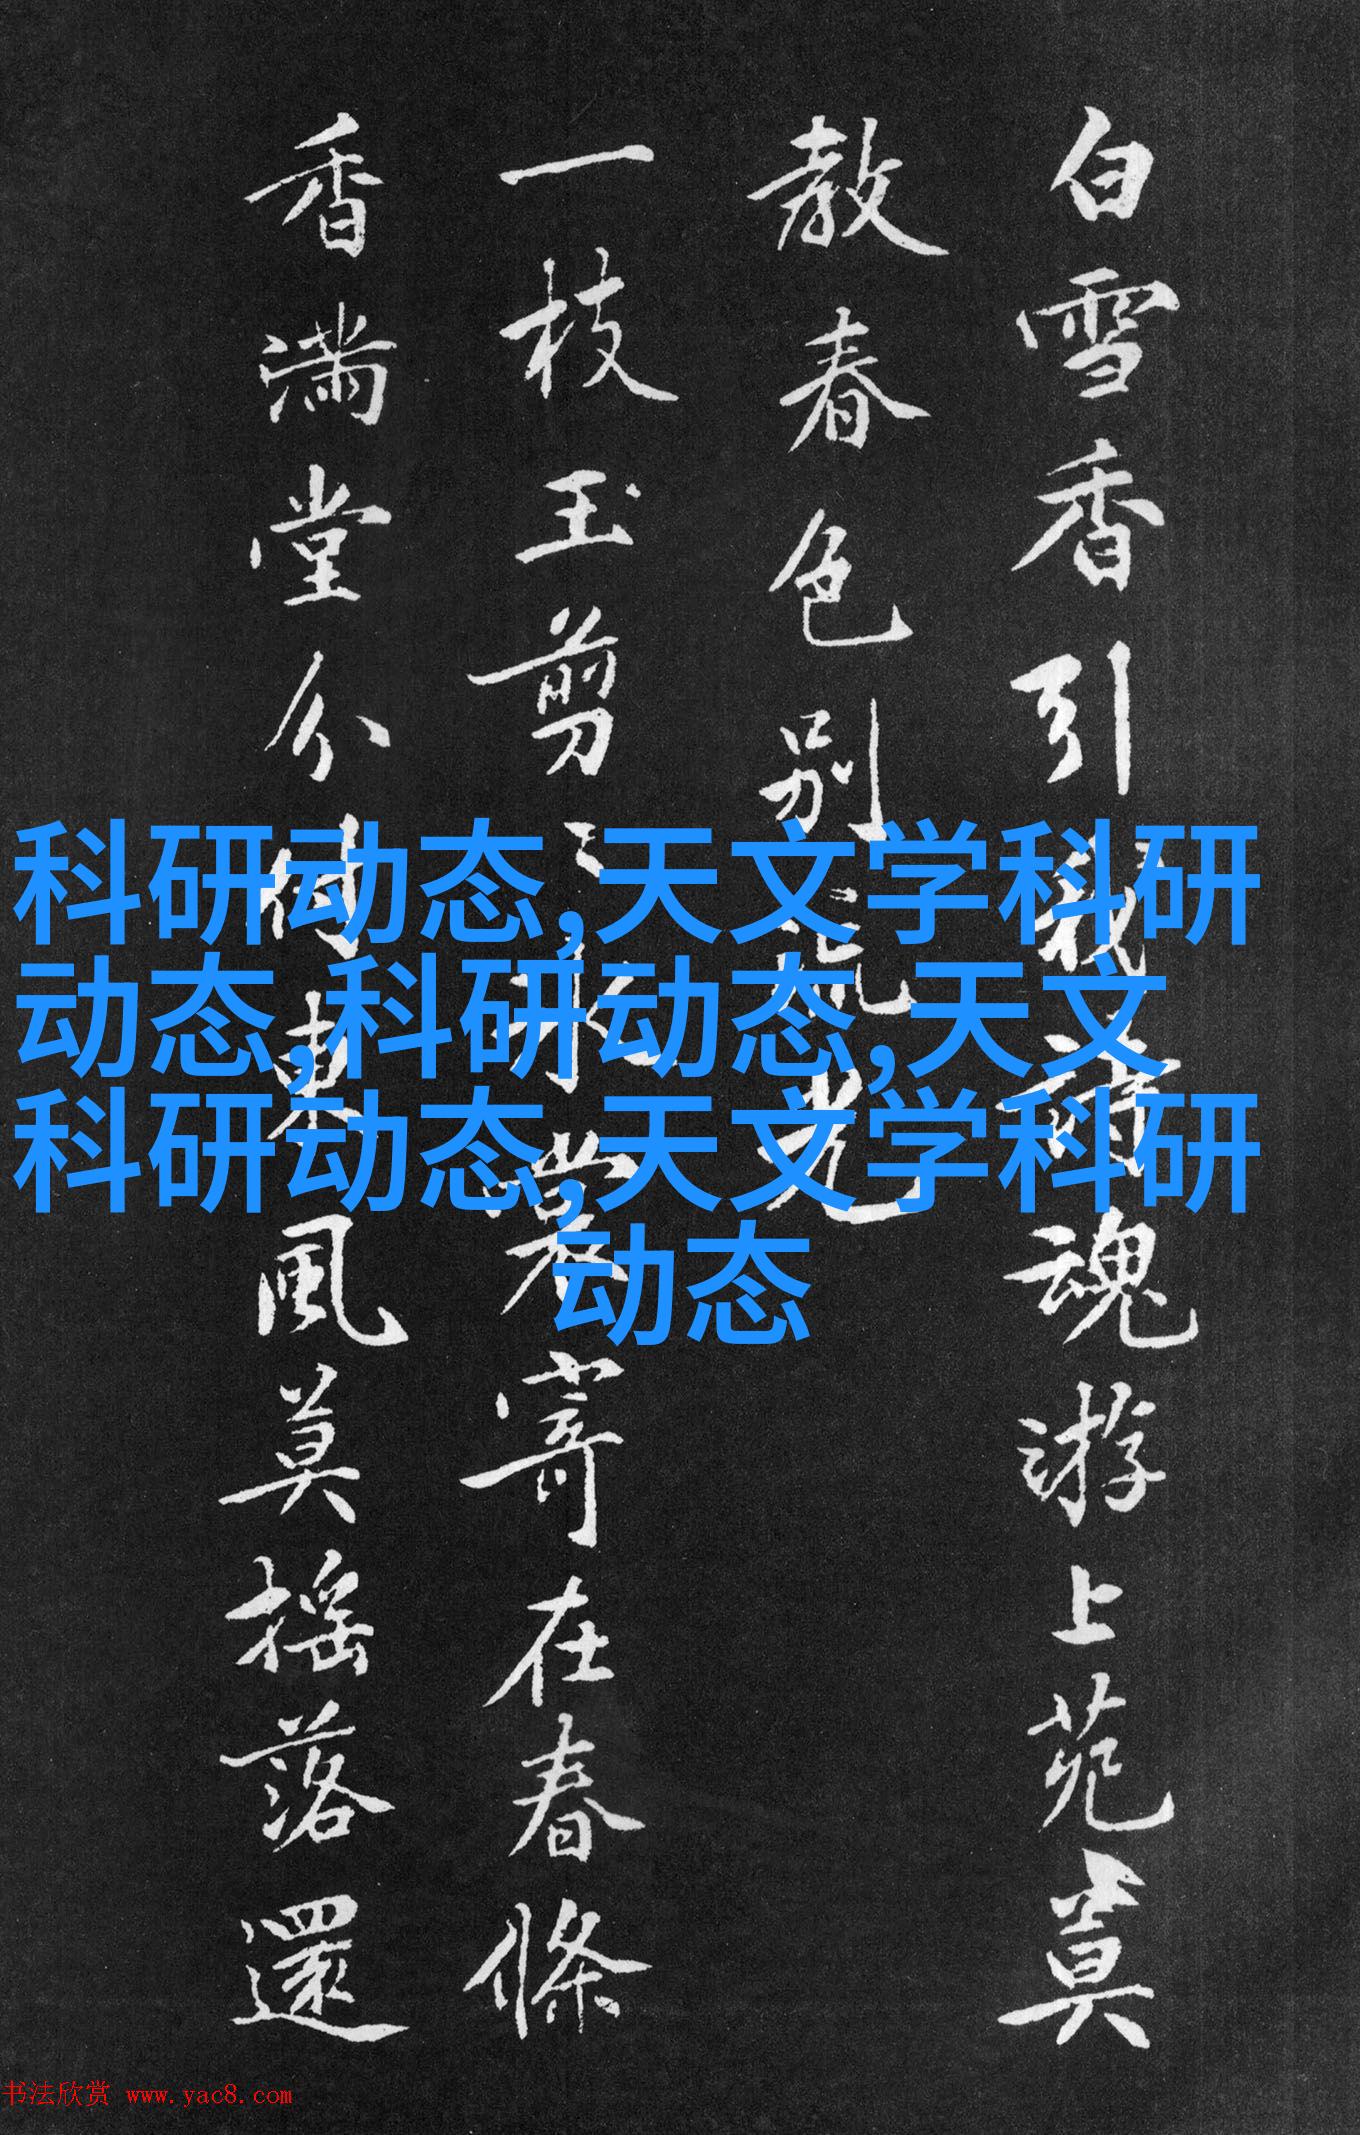 白雪香引我詩魂游上苑莫
教春色别光
一枝玉剪裳寄在春條
香滿堂分付東風莫摇落還
科研动态,天文学科研
动态,科研动态,天文
科研动态,天文学科研
动态
书法欣赏 www.yac8.com